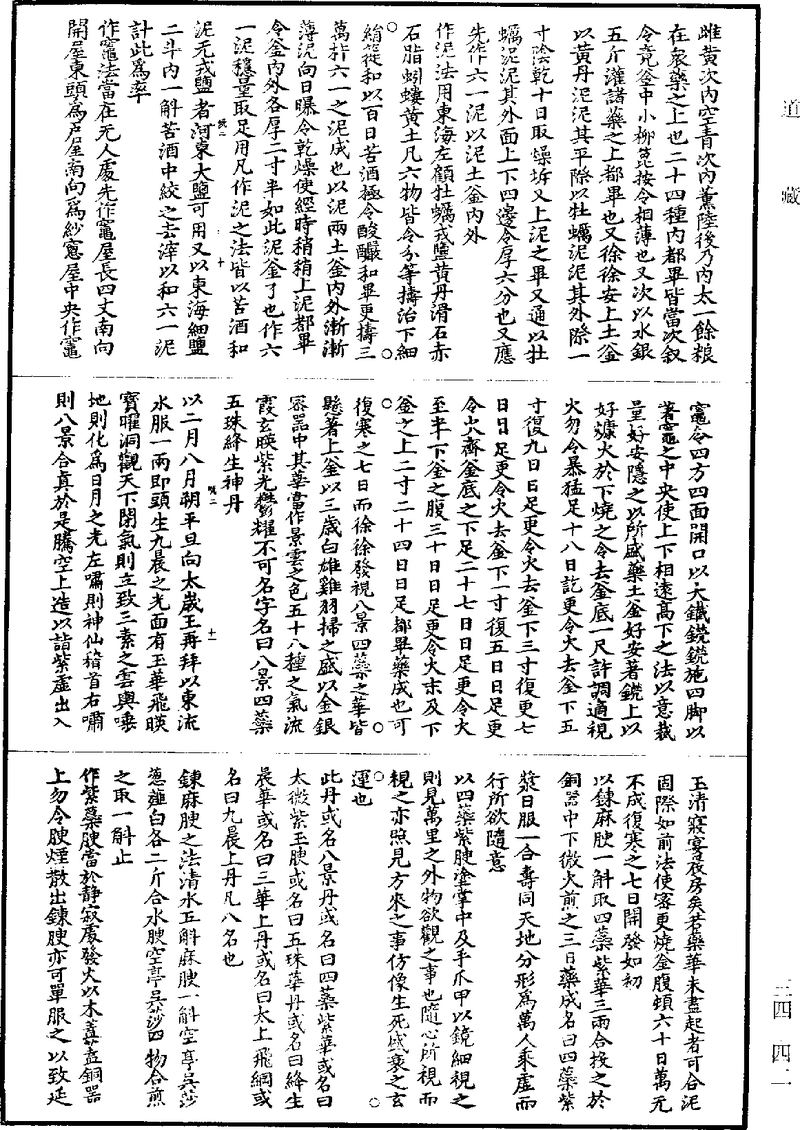 道藏
雌黄次內空青次內薰陸後乃內太一餘粮
在衆藥之上也二十四種內都畢皆當次叙
令竟釜中小柳箆按令相薄也又次以水銀
五斤灌諸藥之上都畢也又徐徐安上土釜
以黄丹泥泥其平際以牡蠣泥泥其外際一
寸陰乾十日取燥坼又上泥之畢又通以牡
蠣泥泥其外面上下四邊令厚六分也又應
先作六一泥以泥土釜內外
作泥法用東海左顧牡蠣戎鹽黄丹滑石赤
石脂蚓螻黄土凡六物皆令分等擣治下細
簁從和以百日苦酒極令酸釅和畢更擣三
萬杵六一之泥成也以泥兩土釜內外漸漸
薄泥向日曝令乾燥使經時稍稍上泥都畢
令釜內外各厚二寸半如此泥釜了也作六
一泥穩量取足用凡作泥之法皆以苦酒和
泥无戎鹽者河東大鹽可用又以東海細鹽
二斗內一斛苦酒中絞之去滓以和六一泥
計此爲率
作竈法當在无人處先作竈屋長四丈南向
開屋東頭爲戶屋南向爲紗窻屋中央作竈
竈令四方四面開口以大鐵鐃鐃施四脚以
著竈之中央使上下相遠高下之法以意裁
量好安隱之以所盛藥土釜好安著鐃上以
好糠火於下燒之令去釜底一尺許調適視
火勿令暴猛足十八日訖更令火去釜下五
寸復九日日足更令火去釜下三寸復更七
日日足更令火去釜下一寸復五日日足更
令火齊釜底之下足二十七日日足更令火
至半下釜之腹三十日日足更令火未及下
釜之上二寸二十四日日足都畢藥成也可
復寒之七日而徐徐發視八景四藥之華皆
懸著上釜以三歲白雄雞羽掃之盛以金銀
蜜器中其華當作景雲之色五十八種之氣流
霞玄暎紫光鬱耀不可名字名曰八景四藥
五珠絳生神丹
以二月八月朔平旦向太歲王再拜以東流
水服一兩即頭生九晨之光面有玉華飛暎
寳曜洞觀天下閉氣則立致三素之雲輿唾
地則化爲日月之光左嘯則神仙稽首右嘯
則八景合真於是騰空上造以詣紫虛出入
玉清寢宴夜房矣若藥華未盡起者可合泥
固際如前法使密更燒釜腹頓六十日萬元
不成復寒之七日開發如初
以鍊麻腴一斛取四藥紫華三兩合投之於
銅器中下微火煎之三日藥成名曰四藥紫
漿日服一合壽同天地分形爲萬人乘虛而
行所欲隨意
以四藥紫腴塗掌中及手爪甲以鏡細視之
則見萬里之外物欲觀之事也隨心所視而
視之亦照見方來之事仿像生死盛衰之玄
運也
此丹或名八景丹或名曰四藥紫華或名曰
太微紫玉腴或名曰五珠華丹或名曰絳生
晨華或名曰三華上丹或名曰太上飛綱或
名曰九晨上丹凡八名也
鍊麻腴之法清水五斛麻腴一斛空亭吳莎
葱薤白各二斤合水腴空亭吳莎四物合煎
之取一斛止
作紫藥腴當於静寂處發火以木蓋蓋銅器
上勿令腴煙散出鍊腴亦可單服之以致延
三四　四二